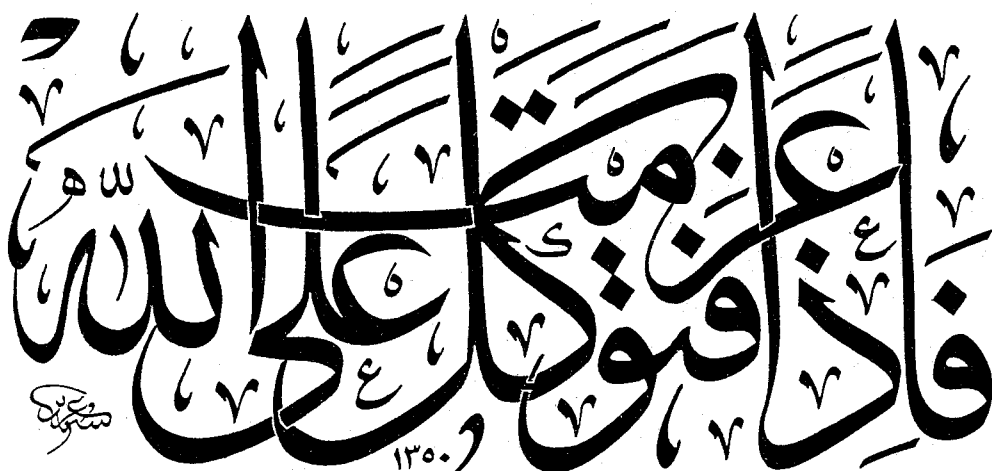 فَإِذَا عَزَمْتَ فَتَوَكَّلْ عَلَى اللَّهِ
١٣٥٠